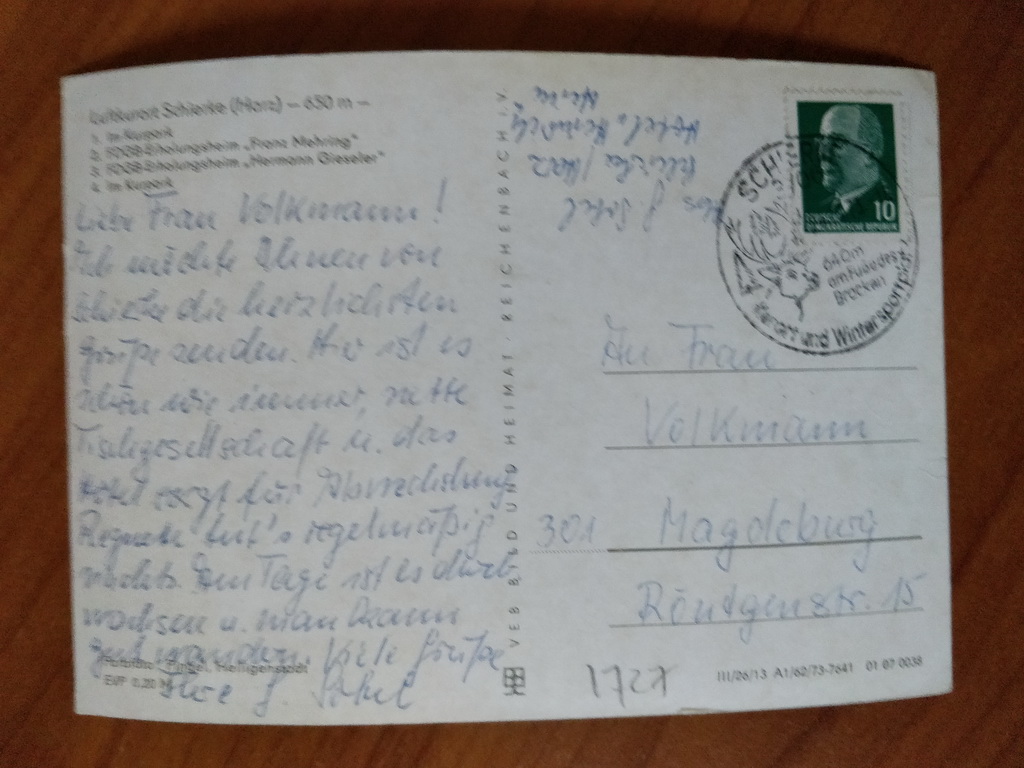 Luftkurort Schierke (Harz) — 650 m —
1. Im Kurpark
2. FDGB-Erholungsheim „Franz Mehring"
3. FDGB-Erholungsheim „Hermann Gieseler"
4. Im Kurpark
Liebe Frau Volkmann!
Ich möchte Ihnen von
Schierke die herzlichsten
Grüße senden. Hier ist es
schön wie immer, nette
Tischgesellschaft u. das
Hotel sorgt für Abwechslung
Regnen tut's regelmäßig
nachts. Am Tage ist es
u. man kann
gut wandern. Viele Grüße
Ihre G.
Foto: Heiligenstadt
EVP 0,20 M
VEB BILD UND HEIMAT · REICHENBACH i. V.
Abs. G.
Schierke/Harz
Hotel Heinrich
Heine
DEUTSCHE
DEMOKRATISCHE REPUBLIK
10
640 m
am Fuße des
Brocken
Kurort und Wintersportplatz
An Frau
Volkmann
301 Magdeburg
Röntgenstr. 15
1727
III/26/13 A1/62/73-7641 01 07 0038